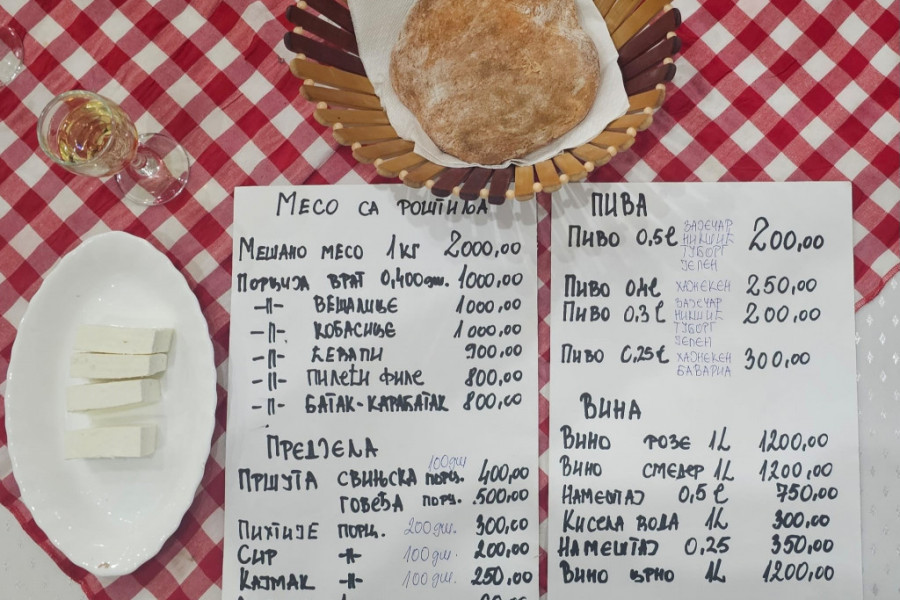 МЕСО СА РОШТИЉА
МЕШАНО МЕСО 1КГ 2000,00
ПОРЦИЈА ВРАТ 0,400гм. 1000,00
-||- ВЕШАЛИЦЕ 1000,00
-||- КОБАСИЦЕ 1000,00
-||- ЋЕВАПИ 900,00
-||- ПИЛЕЋИ ФИЛЕ 800,00
-||- БАТАК-КАРАБАТАК 800,00
ПРЕДЈЕЛА
100гм
ПРШУТА СВИЊСКА ПОРЦ. 400,00
ГОВЕЂА ПОРЦ. 500,00
ПИХТИЈЕ ПОРЦ. 200гм. 300,00
СИР -||- 100гм. 200,00
КАЈМАК -||- 100гм. 250,00
ПИВА
ПИВО 0,5l ЗАЈЕЧАР 200,00
НИКШИЋ
ТУБОРГ
ЈЕЛЕН
ПИВО 0,4l ХАЈНЕКЕН 250,00
ПИВО 0,3l ЗАЈЕЧАР 200,00
НИКШИЋ
ТУБОРГ
ЈЕЛЕН
ПИВО 0,25l ХАЈНЕКЕН 300,00
БАВАРИА
ВИНА
ВИНО РОЗЕ 1L 1200,00
ВИНО СМЕДЕР 1L 1200,00
НАМЕШТАЈ 0,5l 750,00
КИСЕЛА ВОДА 1L 300,00
НАМЕШТАЈ 0,25 350,00
ВИНО ЦРНО 1L 1200,00